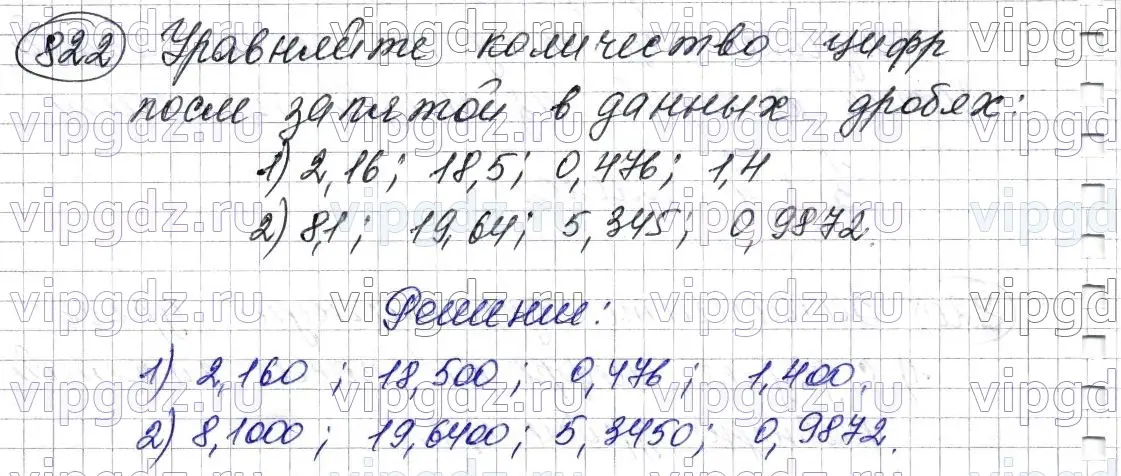 822 Уравняйте количество цифр
после запятой в данных дробях:
1) 2,16; 18,5; 0,476; 1,4
2) 8,1; 19,64; 5,345; 0,9872.
Решение:
1) 2,160; 18,500; 0,476; 1,400.
2) 8,1000; 19,6400; 5,3450; 0,9872.
vipgdz.ru